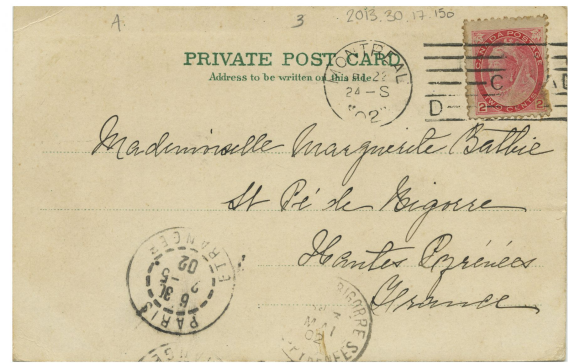 A. 3 2013.30.17.150
PRIVATE POST CARD
Address to be written on this side
MONTREAL
22
24-S
"02"
CANADA POSTAGE
2 TWO CENTS 2
C A
D
Mademoiselle Marguerite Bathie
St Pé de Bigorre
Hautes Pyrénées
France
PARIS
ETRANGER
6
02
BIGORRE
MAI
02